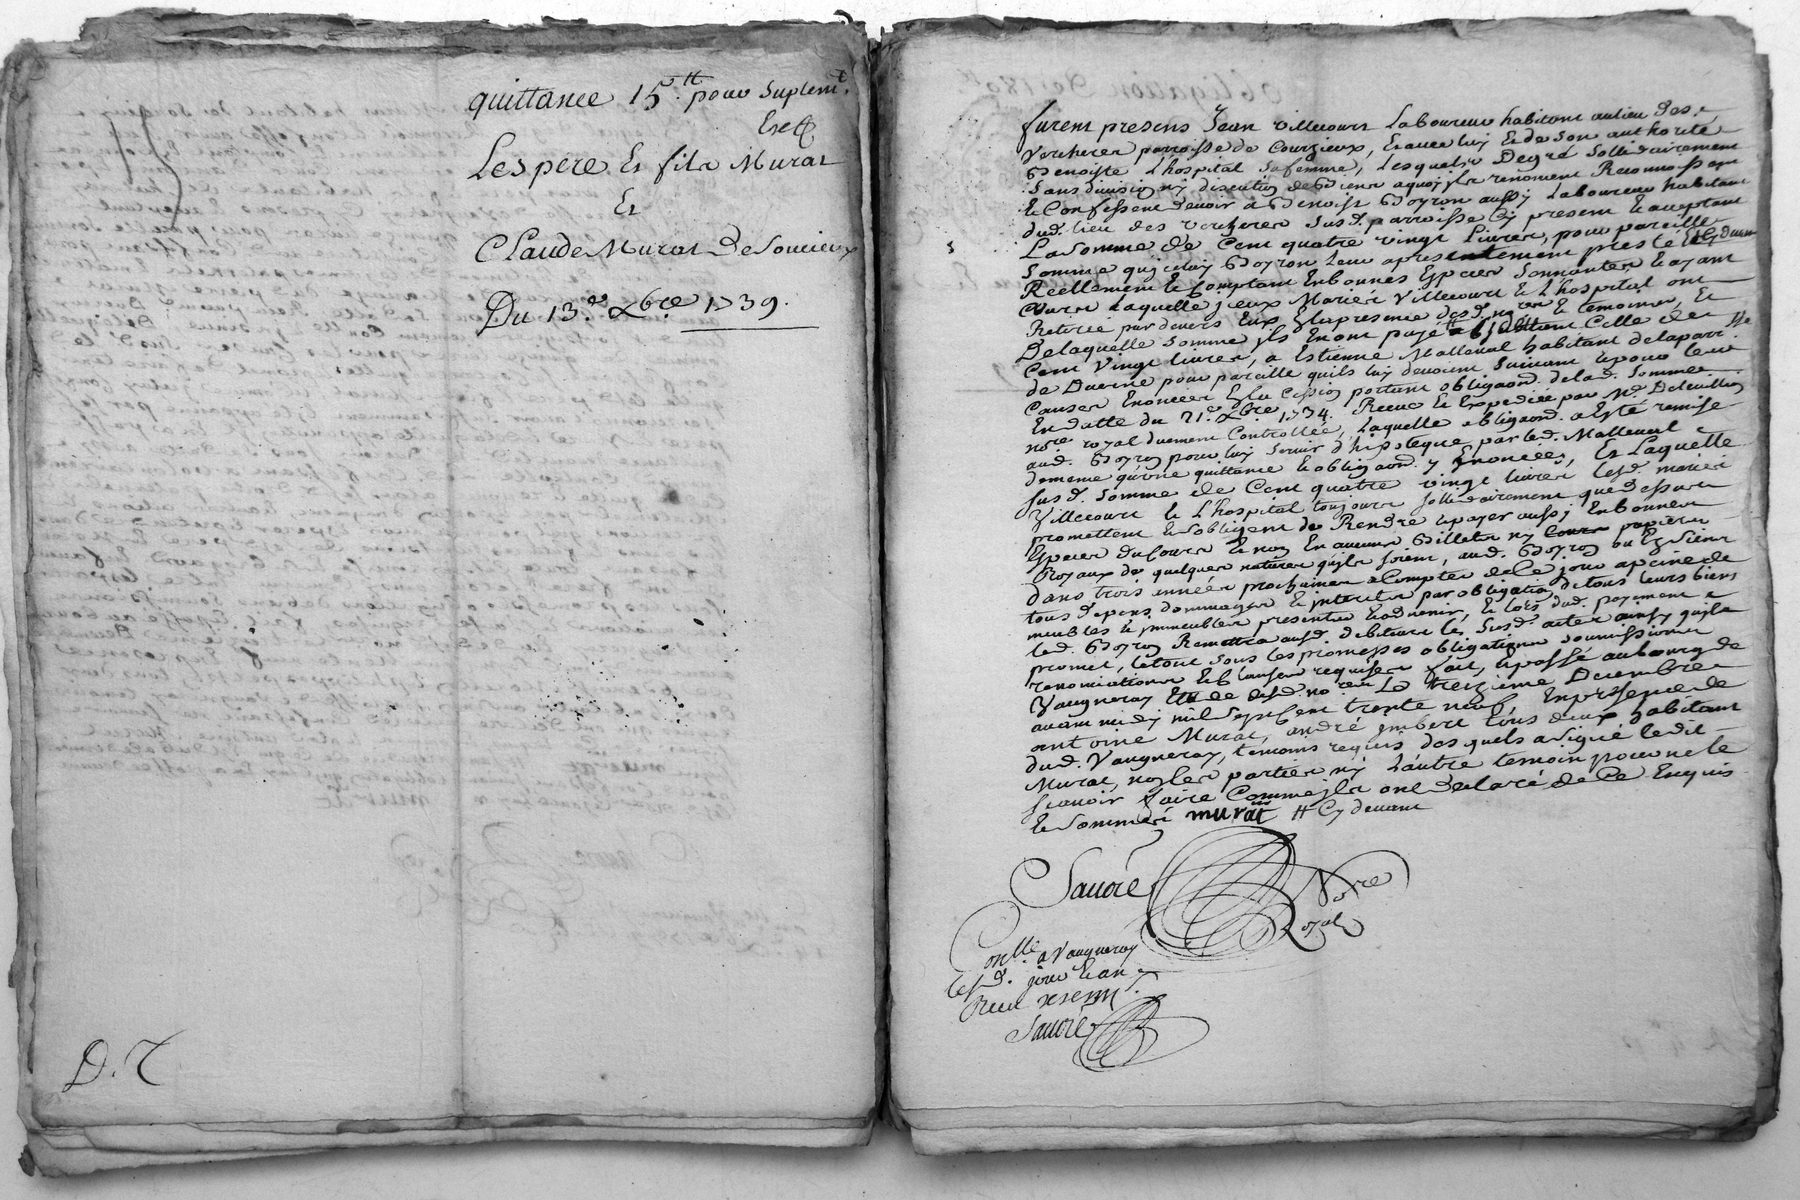 quittance 15.tt pour suplem.t
Exe
Les pere et fils Murat
Et
Claude Murat De Soucieux
Du 13.e xbre 1739.
D. 7
furent presens Jean villecourt Laboureur habitant aulieu Des
Vercheres parroisse de Courzieux, Et avec luy Et de Son authorité
Benoiste L'hospital sa femme, Lesquels De gré Sollidairement
Sans division ny discution de Biens a quoy ils renoncent Reconnoissent
Et Confessent devoir a Benoist Boyron aussy Laboureur habitant
dud. lieu des vercheres Susd. parroisse Cy present Et acceptant
La Somme de Cent quatre vingt Livres, pour pareille
Somme qu'iceluy Boyron Leur apresentement presté Et Cy devant
Reellement Et Comptant En bonnes Especes Sonnantes, Et ayant
Cours Laquelle jceux Mariés Villecourt Et L'hospital ont
Retirée pardevers Eux En la presence desd. no.re Et temoins, Et
De laquelle Somme jls En ont payé tt Celle de
Cent Vingt livres, a Estienne Malleval habitant de la parr.sse
de Duerne pour pareille quils luy devoient Suivant Et pour Les
Causes Enoncées En la Cession portant obligaon. de lad. Somme
En datte du 21.e xbre 1734. Receue Et Expediée par M.e Delevillion
no.re royal duement Controllée, Laquelle obligaon. a Esté remise
aud. Boyron pour luy Servir d'hipoteque par led. Malleval
de meme qu'une quittance Et obligaon. y Enoncées, Et Laquelle
Susd. Somme de Cent quatre vingt livres lesd. mariés
Villecourt Et L'hospital toujours Sollidairement que dessus
promettent Et s'obligent de Rendre Et payer aussy En bonnes
Especes du Cours Et non En aucuns Billets ny papiers
Royaux de quelques natures quils Soient, aud. Boyron ou Es Siens
dans trois années prochaines a Compter de Ce jour a peine de
tous depens, dommages Et interets par obligation De tous leurs biens
meubles Et immeubles presents Et advenir, Et lors dud. payement
led. Boyron Remettra ausd. debiteurs les Susd. actes ainsy quil
promet, Le tout Sous Les promesses obligations soumissions
renonciations Et Clauses requises. Fait, Et passé au bourg de
Vaugneray Le treizieme Decembre
avant midy mil Sept Cent trente neuf, En presence de
antoine Murat, andré ymbert tous deux habitant
dud. Vaugneray, temoins requis des quels a signé ledit
Murat, non les parties ny L'autre temoin pour ne le
scavoir faire Comme jls ont declaré de Ce Enquis
Et Sommé murat tt Cy devant
Sauoré No.re
Royal
Con.llé a Vaugneray
lesd. jour Et an
Receu
Sauoré